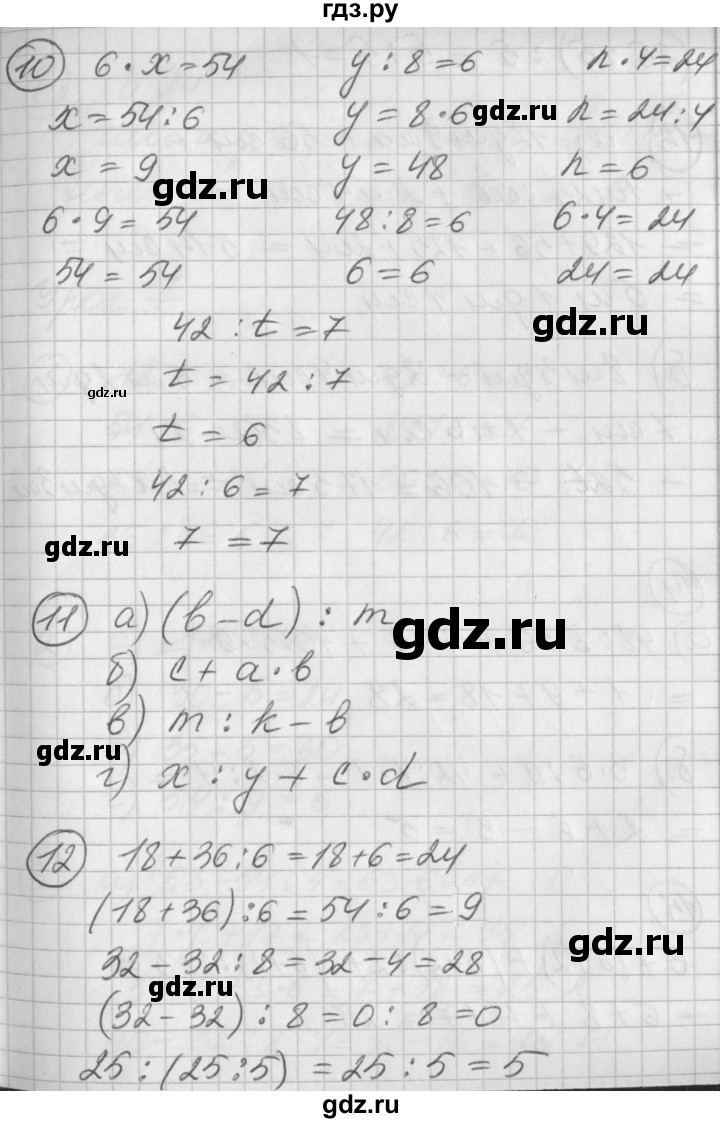 гдз.ру
10 6 · x = 54 y : 8 = 6 n · 4 = 24
x = 54 : 6 y = 8 · 6 gdz.ru n = 24 : 4
x = 9 y = 48 n = 6
gdz.ru
6 · 9 = 54 48 : 8 = 6 6 · 4 = 24
54 = 54 6 = 6 24 = 24
42 : t = 7 gdz.ru
gdz.ru t = 42 : 7
t = 6
42 : 6 = 7
gdz.ru 7 = 7
11 а) (b – d) : m gdz.ru
б) c + a · b
в) m : k – b
gdz.ru
г) x : y + c · d
12 18 + 36 : 6 = 18 + 6 = 24
(18 + 36) : 6 = 54 : 6 = 9
gdz.ru
32 – 32 : 8 = 32 – 4 = 28
gdz.ru
(32 – 32) : 8 = 0 : 8 = 0
25 : (25 : 5) = 25 : 5 = 5
gdz.ru